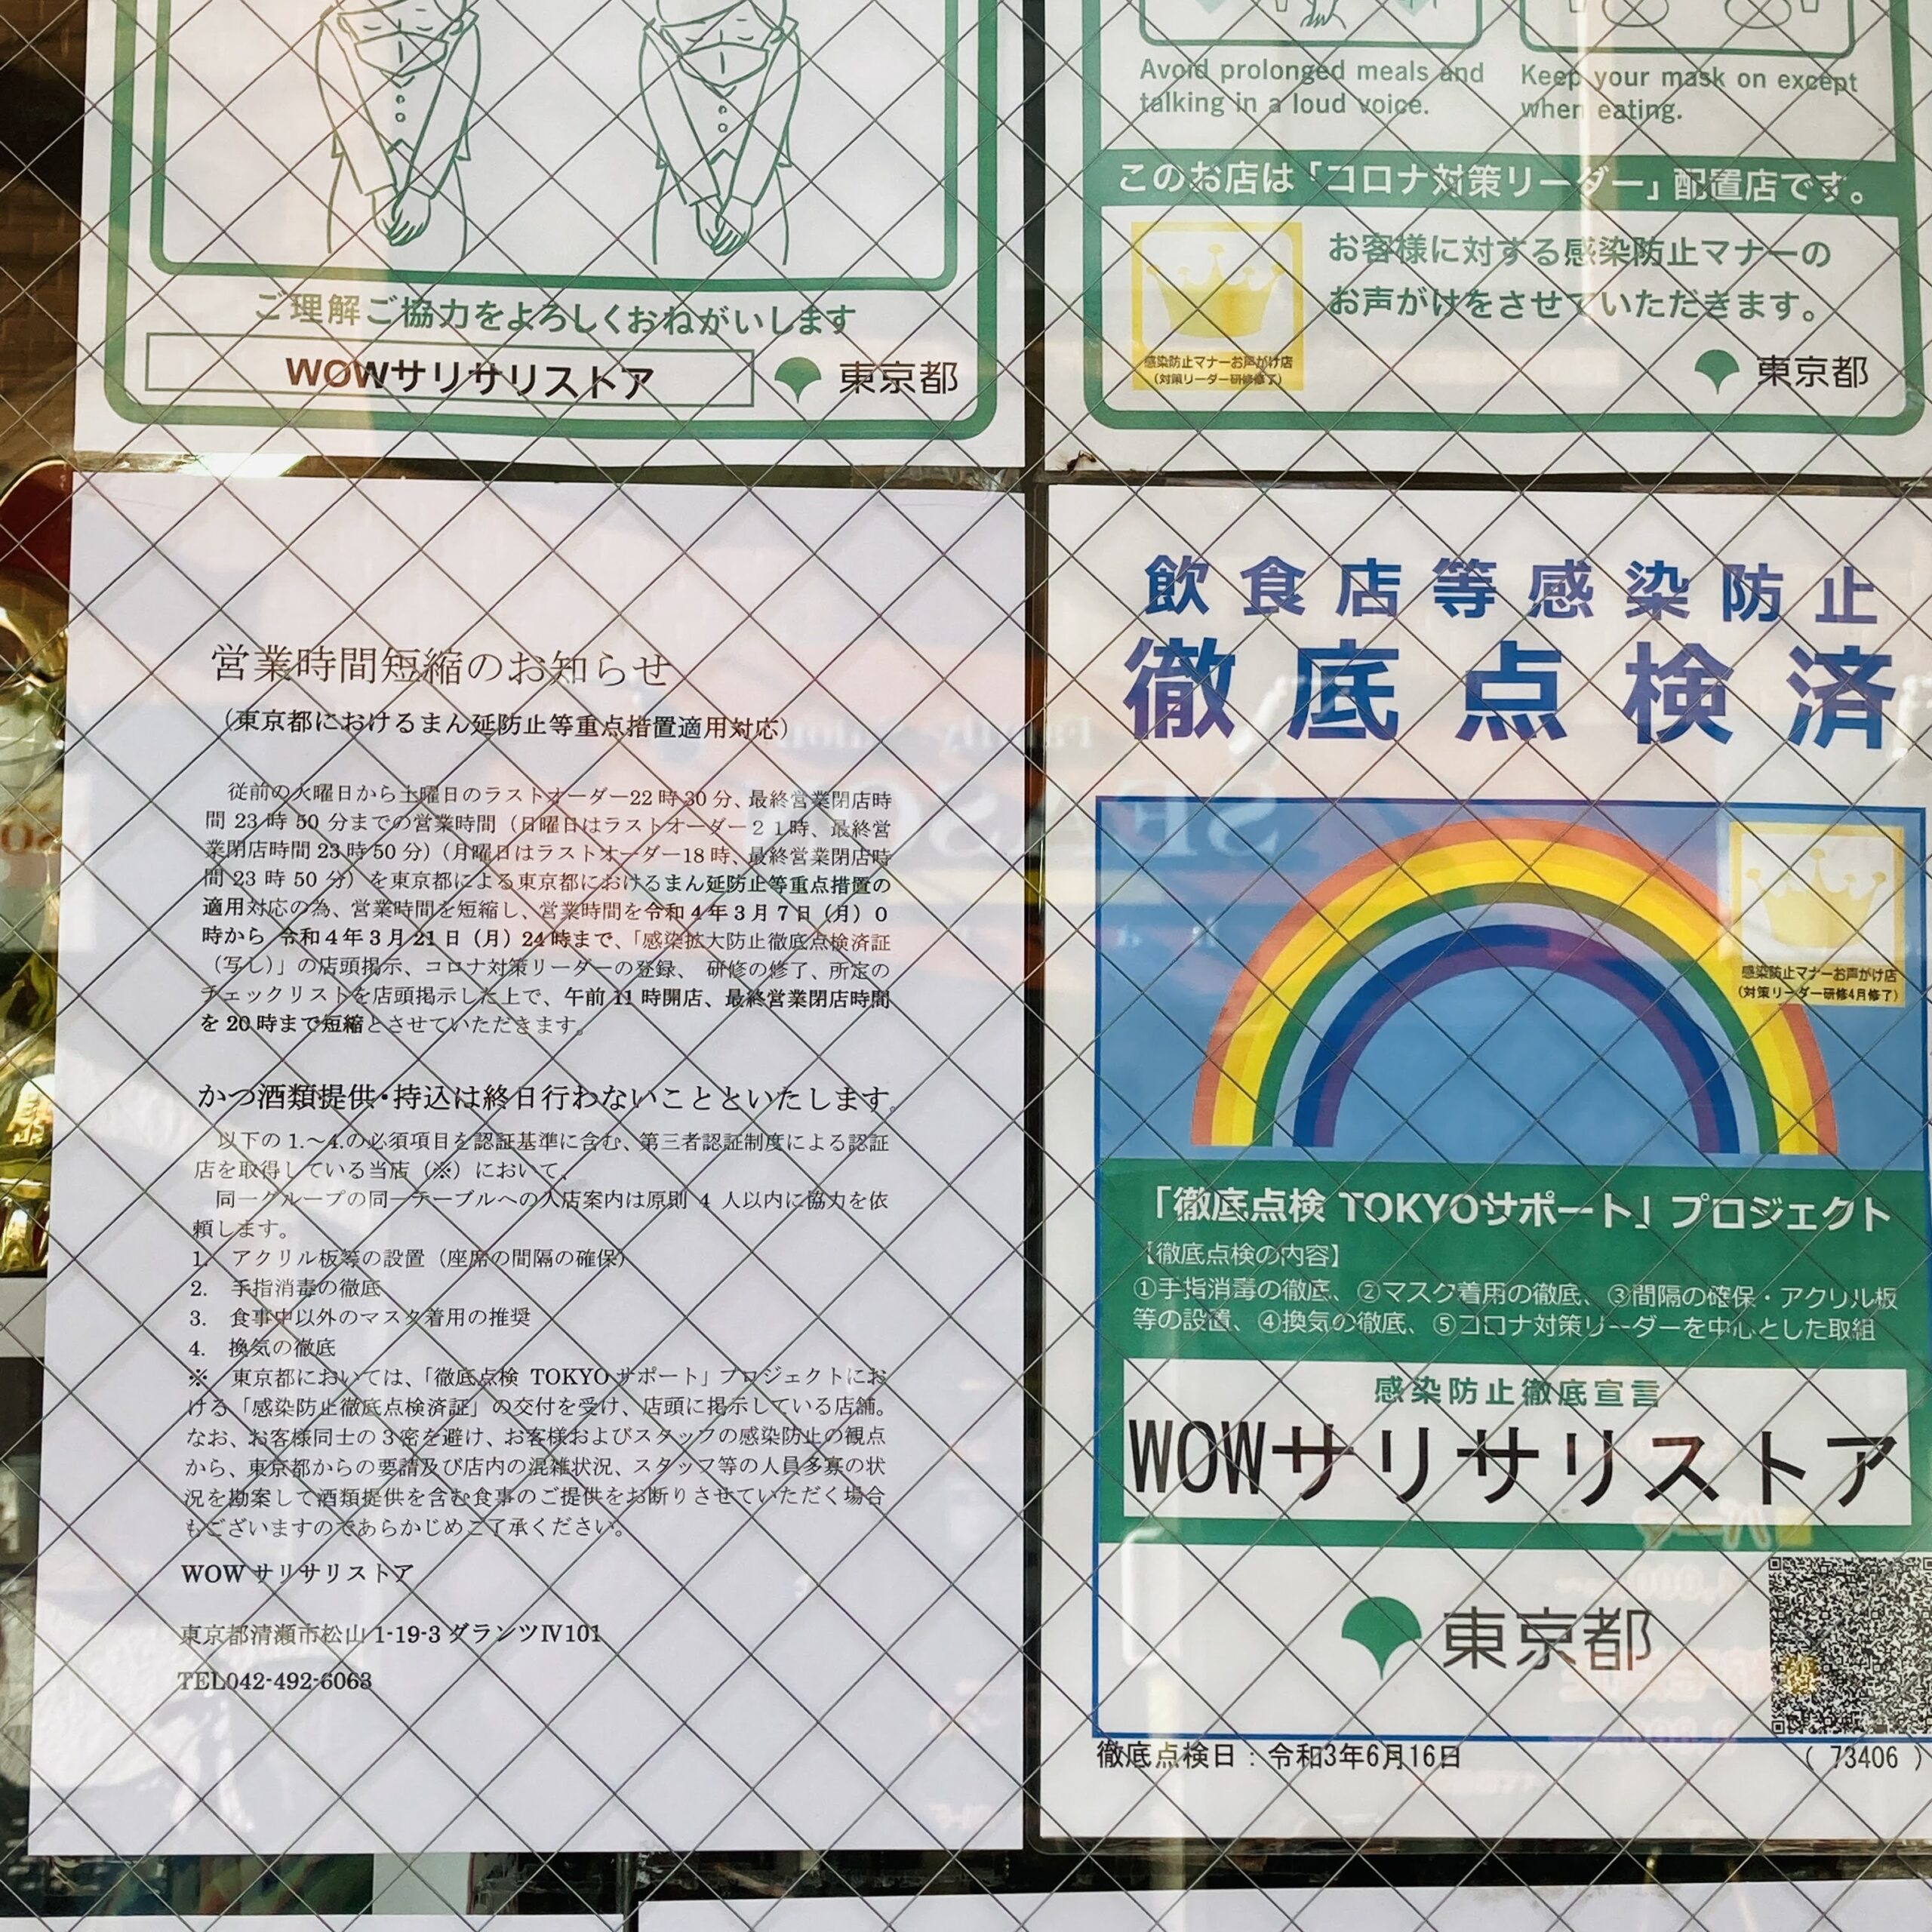 ご理解ご協力をよろしくおねがいします
WOWサリサリストア
東京都
Avoid prolonged meals and
talking in a loud voice.
Keep your mask on except
when eating.
このお店は「コロナ対策リーダー」配置店です。
お客様に対する感染防止マナーの
お声がけをさせていただきます。
感染防止マナーお声がけ店
(対策リーダー研修修了)
東京都
営業時間短縮のお知らせ
（東京都におけるまん延防止等重点措置適用対応）
従前の火曜日から土曜日のラストオーダー22時30分、最終営業閉店時
間 23 時 50 分までの営業時間（日曜日はラストオーダー２１時、最終営
業閉店時間 23 時 50 分）（月曜日はラストオーダー18 時、最終営業閉店時
間 23 時 50 分）を東京都による東京都におけるまん延防止等重点措置の
適用対応の為、営業時間を短縮し、営業時間を令和４年３月７日（月）０
時から 令和４年３月21日（月）24時まで、「感染拡大防止徹底点検済証
（写し）」の店頭掲示、コロナ対策リーダーの登録、 研修の修了、所定の
チェックリストを店頭掲示した上で、午前 11 時開店、最終営業閉店時間
を 20 時まで短縮とさせていただきます。
かつ酒類提供・持込は終日行わないことといたします。
以下の 1.～4.の必須項目を認証基準に含む、第三者認証制度による認証
店を取得している当店（※）において、
同一グループの同一テーブルへの入店案内は原則 4 人以内に協力を依
頼します。
1. アクリル板等の設置（座席の間隔の確保）
2. 手指消毒の徹底
3. 食事中以外のマスク着用の推奨
4. 換気の徹底
※ 東京都においては、「徹底点検 TOKYO サポート」プロジェクトにお
ける「感染防止徹底点検済証」の交付を受け、店頭に掲示している店舗。
なお、お客様同士の３密を避け、お客様およびスタッフの感染防止の観点
から、東京都からの要請及び店内の混雑状況、スタッフ等の人員多寡の状
況を勘案して酒類提供を含む食事のご提供をお断りさせていただく場合
もございますのであらかじめご了承ください。
WOW サリサリストア
東京都清瀬市松山 1-19-3 ダランツⅣ101
TEL042-492-6063
飲食店等感染防止
徹底点検済
感染防止マナーお声がけ店
(対策リーダー研修4月修了)
「徹底点検 TOKYOサポート」プロジェクト
【徹底点検の内容】
①手指消毒の徹底、②マスク着用の徹底、③間隔の確保・アクリル板
等の設置、④換気の徹底、⑤コロナ対策リーダーを中心とした取組
感染防止徹底宣言
WOWサリサリストア
東京都
徹底点検日：令和3年6月16日
( 73406 )